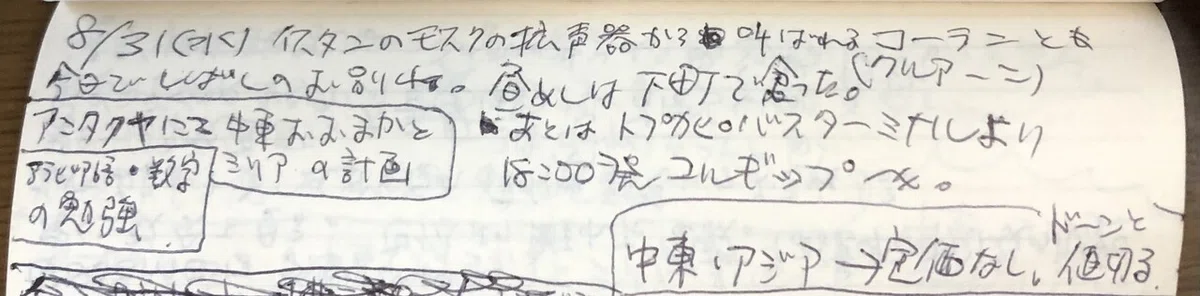 8/31(水) イスタンのモスクの拡声器から叫ばれるコーランとも
(クルアーン)
今日でしばしのお別れ。昼めしは下町で食った。
あとはトプカピのバスターミナルより
18:00発 コルギップへ。
アンタクヤにて中東おおまかと
シリアの計画
アラビア語・数字
の勉強
中東・アジア→定価なし、ドーンと値切る